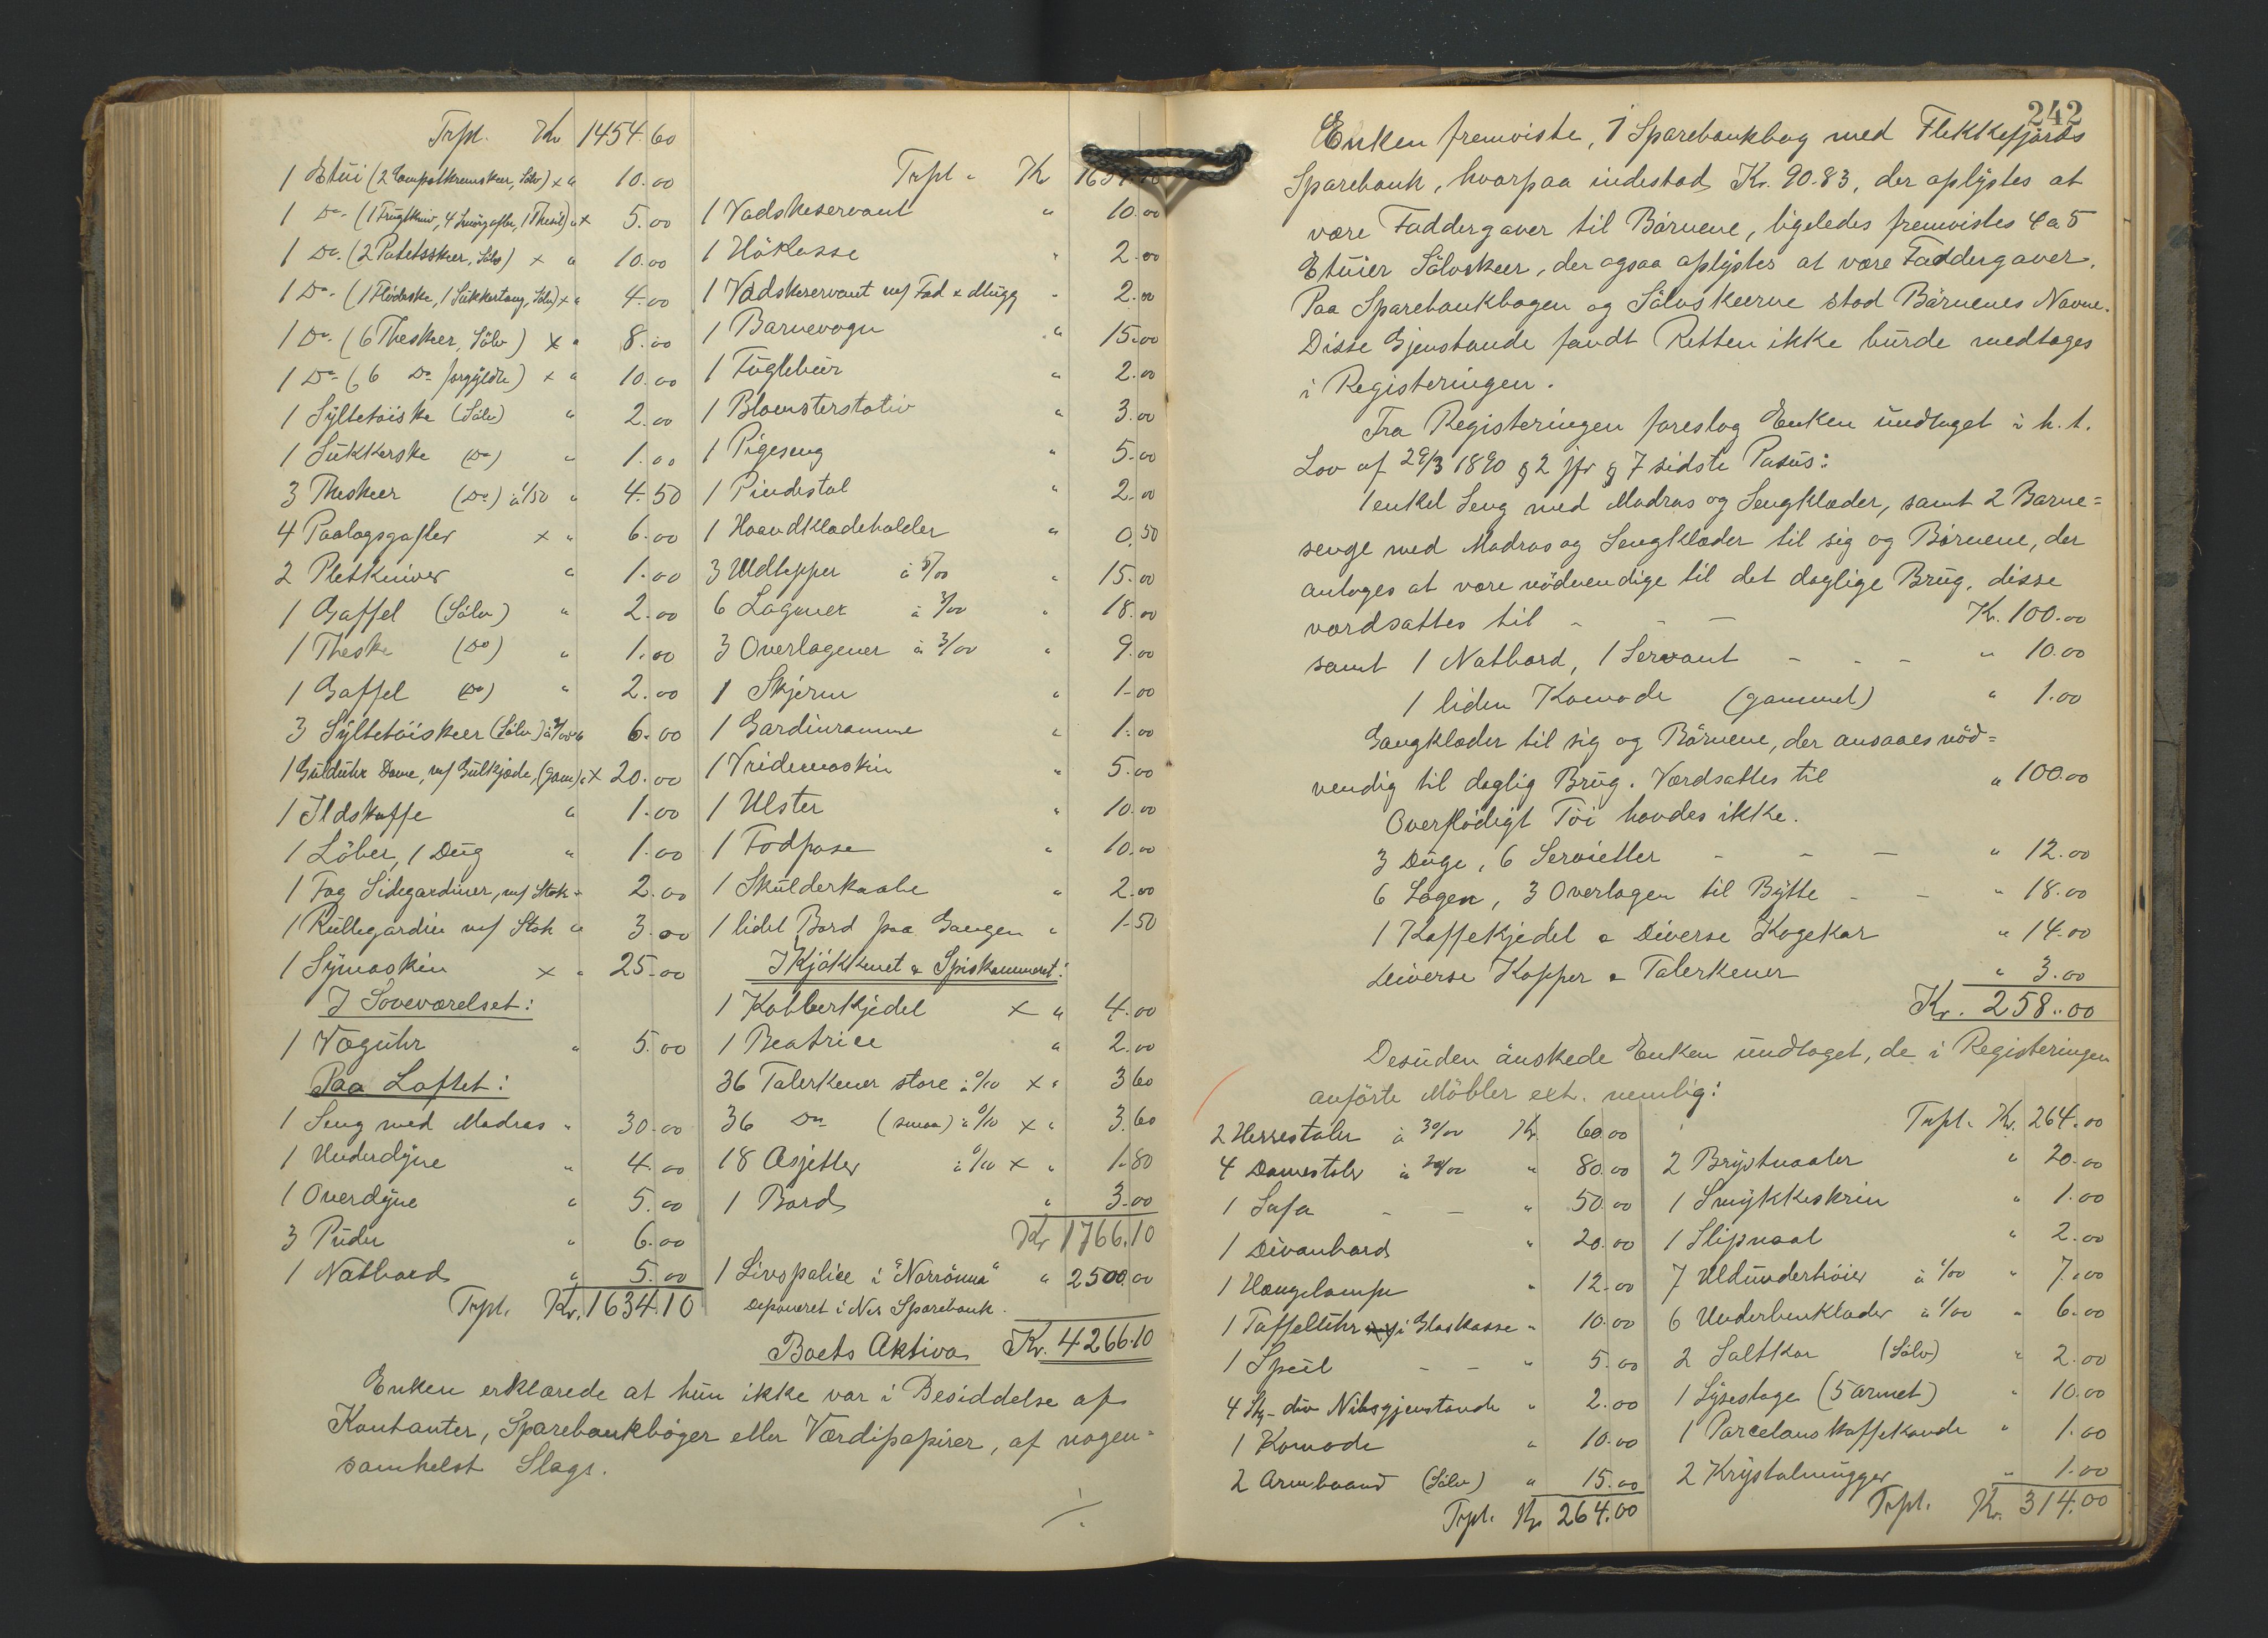 Trpt. Kr 1454.60
1 Etui (2 Compotkremskeer, Sölv) x " 10.00
1 Do. (1 Frugtkniv, 4 Smörgafler, 1 Thesil) " x 5.00
1 Do. (2 Potetsskeer, Sölv) x " 10.00
1 Do. (1 Flödeske, 1 Sukkertang, Sölv) x " 4.00
1 Do. (6 Theskeer, Sölv) x " 8.00
1 Do. (6 Do. forgyldte) x " 10.00
1 Syltetöiske (Sölv) " 2.00
1 Sukkerske (Do) " 1.00
3 Theskeer (Do) à 1/50 " 4.50
4 Paalægsgafler x " 6.00
2 Pletkniver " 1.00
1 Gaffel (Sölv) " 2.00
1 Theske (Do) " 1.00
1 Gaffel (Do) " 2.00
3 Syltetöiskeer (Sölv) à 2/00 " 6.00
1 Gulduhr Dame, m/ Gulkjæde, (gam) " x 20.00
1 Ildskuffe " 1.00
1 Löber, 1 Dug " 1.00
1 Fag Sidegardiner, m/ Stok " 2.00
1 Rullegardin m/ Stok " 3.00
1 Symaskin x " 25.00
I Soveværelset:
1 Væguhr " 5.00
Paa Loftet:
1 Seng med Madras " 30.00
1 Underdyne " 4.00
1 Overdyne " 5.00
3 Puder " 6.00
1 Natbord " 5.00
Trpt. Kr. 1634.10
Trpt. Kr 1634.10
1 Vadskeservant " 10.00
1 Hökasse " 2.00
1 Vadskeservant m/ Fad & Mugg " 2.00
1 Barnevogn " 15.00
1 Fuglebur " 2.00
1 Blomsterstativ " 3.00
1 Pigeseng " 5.00
1 Pindestol " 2.00
1 Haandklædeholder " 0.50
3 Uldtepper à 5/00 " 15.00
6 Lagener à 3/00 " 18.00
3 Overlagener à 3/00 " 9.00
1 Skjerm " 1.00
1 Gardinramme " 1.00
1 Vridemaskin " 5.00
1 Ulster " 10.00
1 Fodpose " 10.00
1 Skulderkaabe " 2.00
1 lidet Bord paa Gangen " 1.50
I Kjökkenet & Spiskammeret:
1 Kobberkjedel x " 4.00
1 Beatrice " 2.00
36 Talerkener store à 0/10 x " 3.60
36 Do (smaa) à 0/10 x " 3.60
18 Asjetter à 0/10 x " 1.80
1 Bord " 3.00
Kr 1766.10
1 Livspolice i "Norröna" " 2500.00
Deponeret i Nes Sparebank.
Boets Aktiva Kr. 4266.10
Enken erklærede at hun ikke var i Besiddelse af
Kontanter, Sparebankböger eller Værdipapirer, af nogen=
somhelst Slags.
./.
242
Enken fremviste, 1 Sparebankbog med Flekkefjords
Sparebank, hvorpaa indestod Kr. 90.83, der oplystes at
være Faddergaver til Börnene, ligeledes fremvistes 4 a 5
Etuier Sölvskeer, der ogsaa oplystes at være Faddergaver.
Paa Sparebankbogen og Sölvskeerne stod Börnenes Navne.
Disse Gjenstande fandt Retten ikke burde medtages
i Registeringen.
Fra Registeringen foreslog Enken undtaget i h. t.
Lov af 29/3 1890 § 2 jfr § 7 sidste Pasus:
1 enkel Seng med Madras og Sengklæder, samt 2 Barne=
senge med Madras og Sengklæder til sig og Börnene, der
antoges at være nödvendige til det daglige Brug, disse
værdsattes til - - - Kr. 100.00
samt 1 Natbord, 1 Servant - - - " 10.00
1 liden Komode (gammel) " 1.00
Gangklæder til sig og Börnene, der ansaaes nöd=
vendig til daglig Brug. Værdsattes til " 100.00
Overflödigt Töi havdes ikke.
3 Duge, 6 Servietter - - - " 12.00
6 Lagen, 3 Overlagen til Bytte - - " 18.00
1 Kaffekjedel & Diverse Kogekar " 14.00
Diverse Kopper & Talerkener " 3.00
Kr. 258.00
Desuden önskede Enken undtaget, de i Registeringen
anförte Möbler ect. nemlig:
2 Herrestoler à 30/00 Kr. 60.00
4 Damestoler à 20/00 " 80.00
1 Sofa - - " 50.00
1 Divanbord " 20.00
1 Hængelampe " 12.00
1 Taffeluhr i Glaskasse " 10.00
1 Speil - - " 5.00
4 Stk. div Nibsgjenstande " 2.00
1 Komode " 10.00
2 Armbaand (Sölv) " 15.00
Trpt. Kr 264.00
Trpt. Kr. 264.00
2 Brystnaaler " 20.00
1 Smykkeskrin " 1.00
1 Slipsnaal " 2.00
7 Uldundertröier à 1/00 " 7.00
6 Underbenklæder à 1/00 " 6.00
2 Saltkar (Sölv) " 2.00
1 Lysestage (5 armet) " 10.00
1 Porcelans Kaffekande " 1.00
2 Krystalmugger " 1.00
Trpt. Kr. 314.00